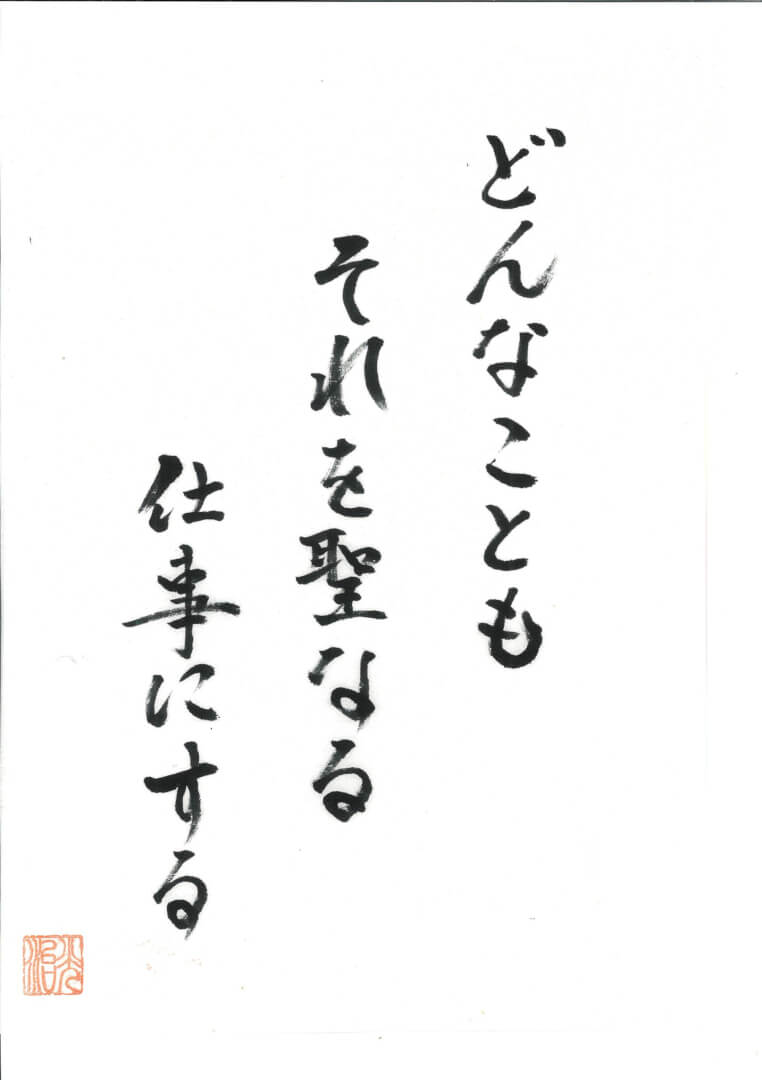 どんなことも
それを聖なる
仕事にする